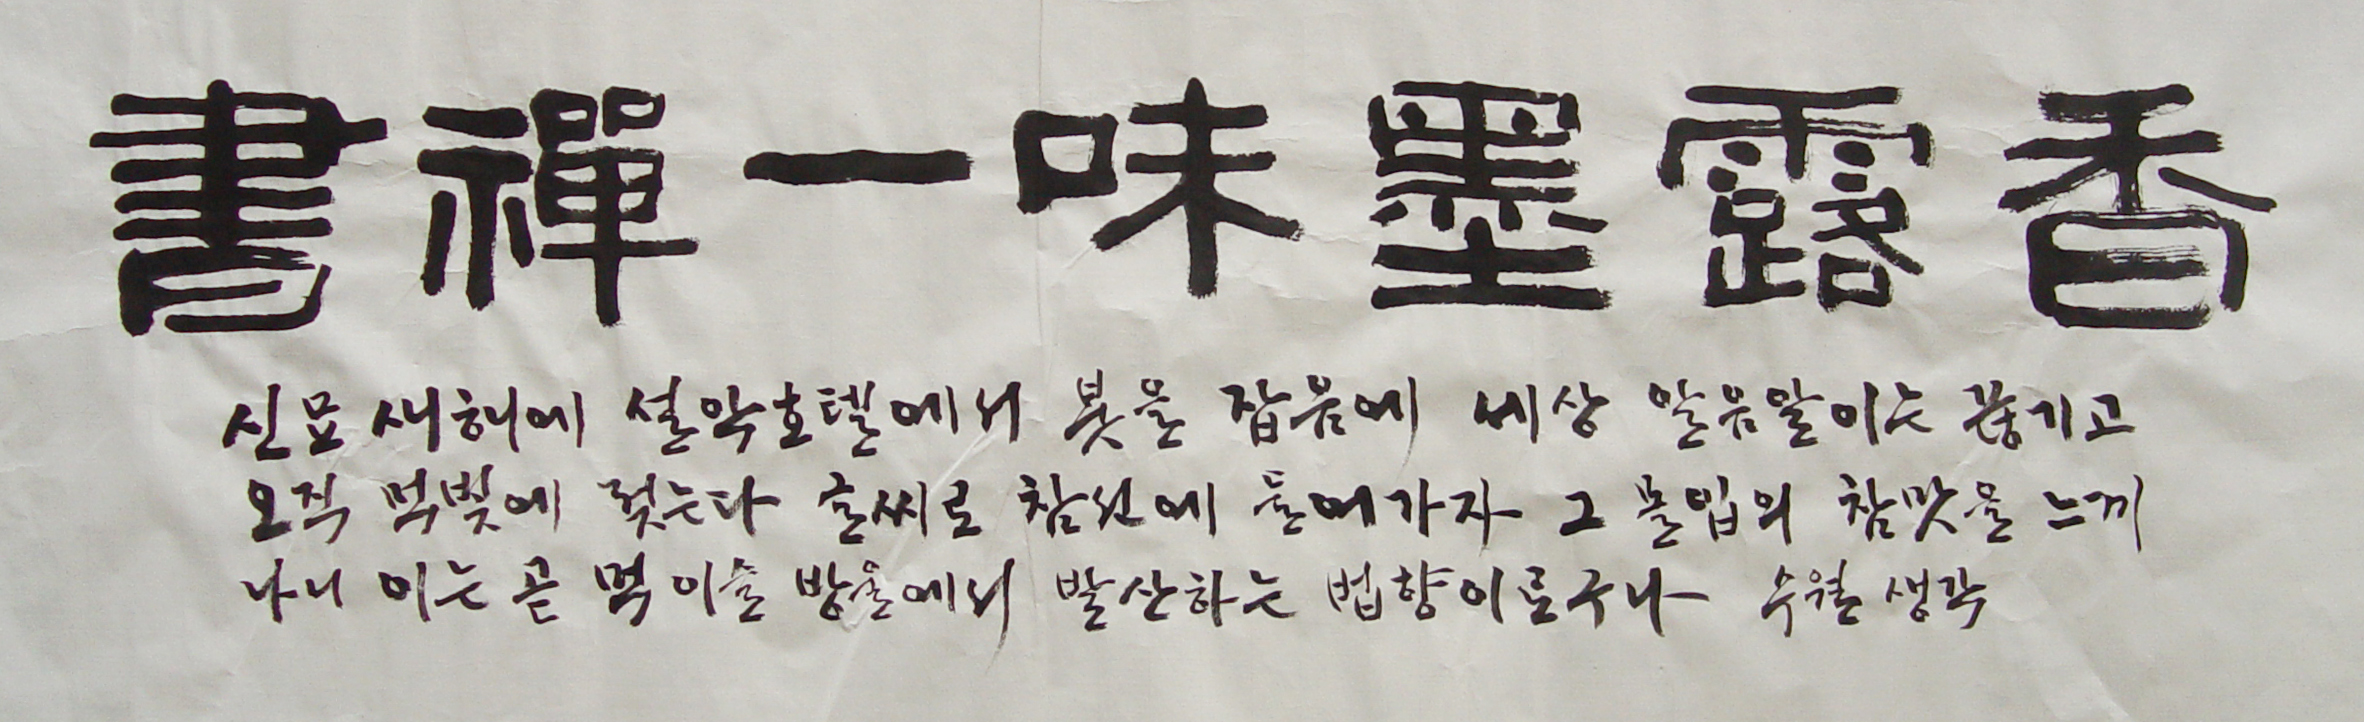 書禪一味墨露香
신묘 새해에 설악호텔에서 붓을 잡음에 세상 알음알이는 끊기고
오직 먹빛에 젖는다 글씨로 참선에 들어가자 그 몰입의 참맛을 느끼
나니 이는 곧 먹 이슬 방울에서 발산하는 법향이로구나 수월 생각